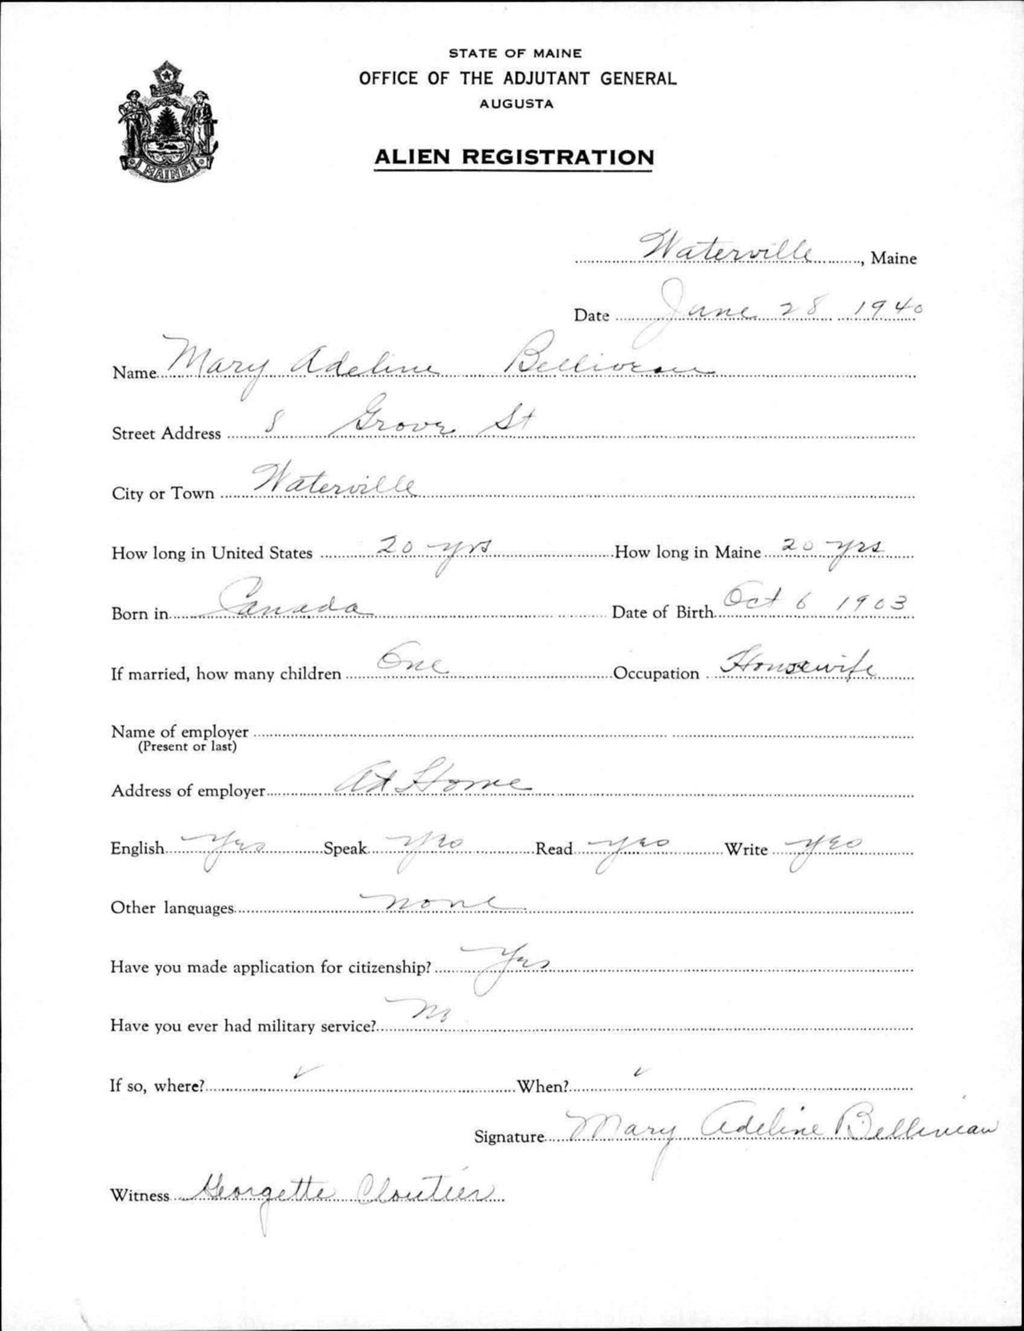 STATE OF MAINE
OFFICE OF THE ADJUTANT GENERAL
AUGUSTA
ALIEN REGISTRATION
MAINE
Waterville, Maine
Date June 28 1940
Name Mary Adeline Belliveau
Street Address 8 Grove St
City or Town Waterville
How long in United States 20 yrs How long in Maine 20 yrs
Born in Canada Date of Birth Oct 6 1903
If married, how many children One Occupation Housewife
Name of employer
(Present or last)
Address of employer At Home
English Yes Speak yes Read yes Write yes
Other languages none
Have you made application for citizenship? Yes
Have you ever had military service? No
If so, where? ✓ When? ✓
Signature Mary Adeline Belliveau
Witness Georgette Cloutier